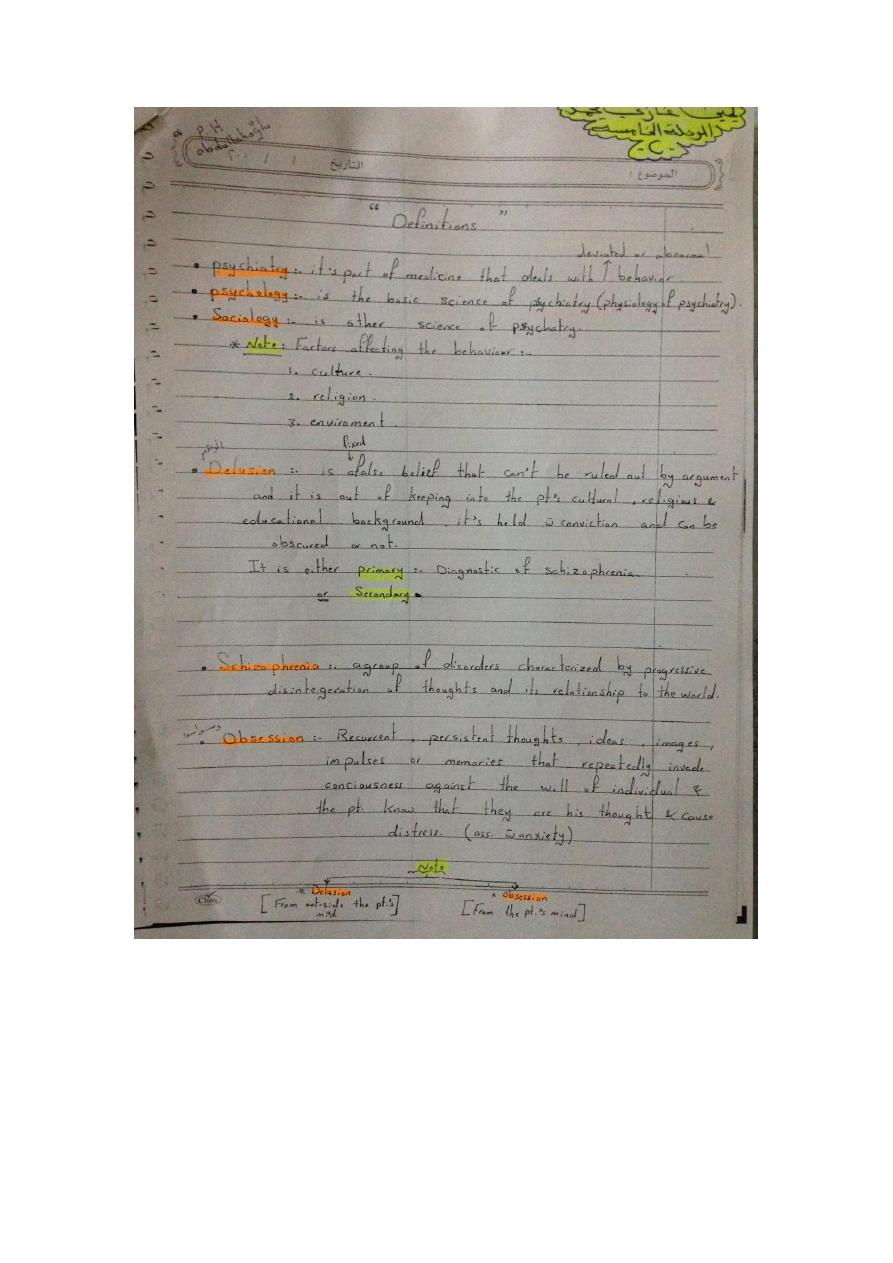 المرحلة الخامسة
-C-
P.H
التاريخ / / ٢٠٠
الموضوع :
“ Definitions ”
deviated or abnormal
• psychiatry :- it's part of medicine that deals with ↑ behavior
• psychology :- is the basic science of psychiatry (physiology of psychiatry).
• Sociology :- is other science of psychatry.
* Note : Factors affecting the behaviour :-
1. culture .
2. religion .
3. enviroment .
fixed
• Delusion :- is afalse belief that can't be ruled out by argument
and it is out of keeping into the pt's cultural , religious &
educational background . it's held w̄ conviction and can be
obscured or not.
It is either primary :- Diagnostic of schizophrenia
or Secondary .
• Schizophrenia :- agroup of disorders characterized by progressive
disintegeration of thoughts and its relationship to the world.
• Obsession :- Recurrent , persistent thoughts , ideas , images ,
impulses or memories that repeatedly invade
conciousness against the will of individual &
the pt. know that they are his thought & cause
distress. (ass. w̄ anxiety)
Note
* Delusion
* Obsession
[From out-side the pt.'s mind]
[From the pt.'s mind]
Class